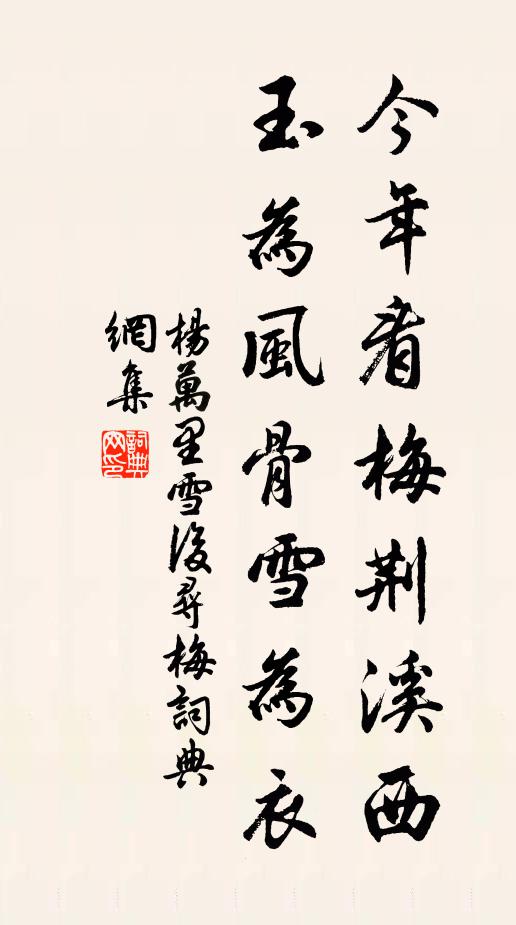 今年看梅荆溪西
玉為風骨雪為衣
楊萬里雪後尋梅詞典
網集
詞典
网印